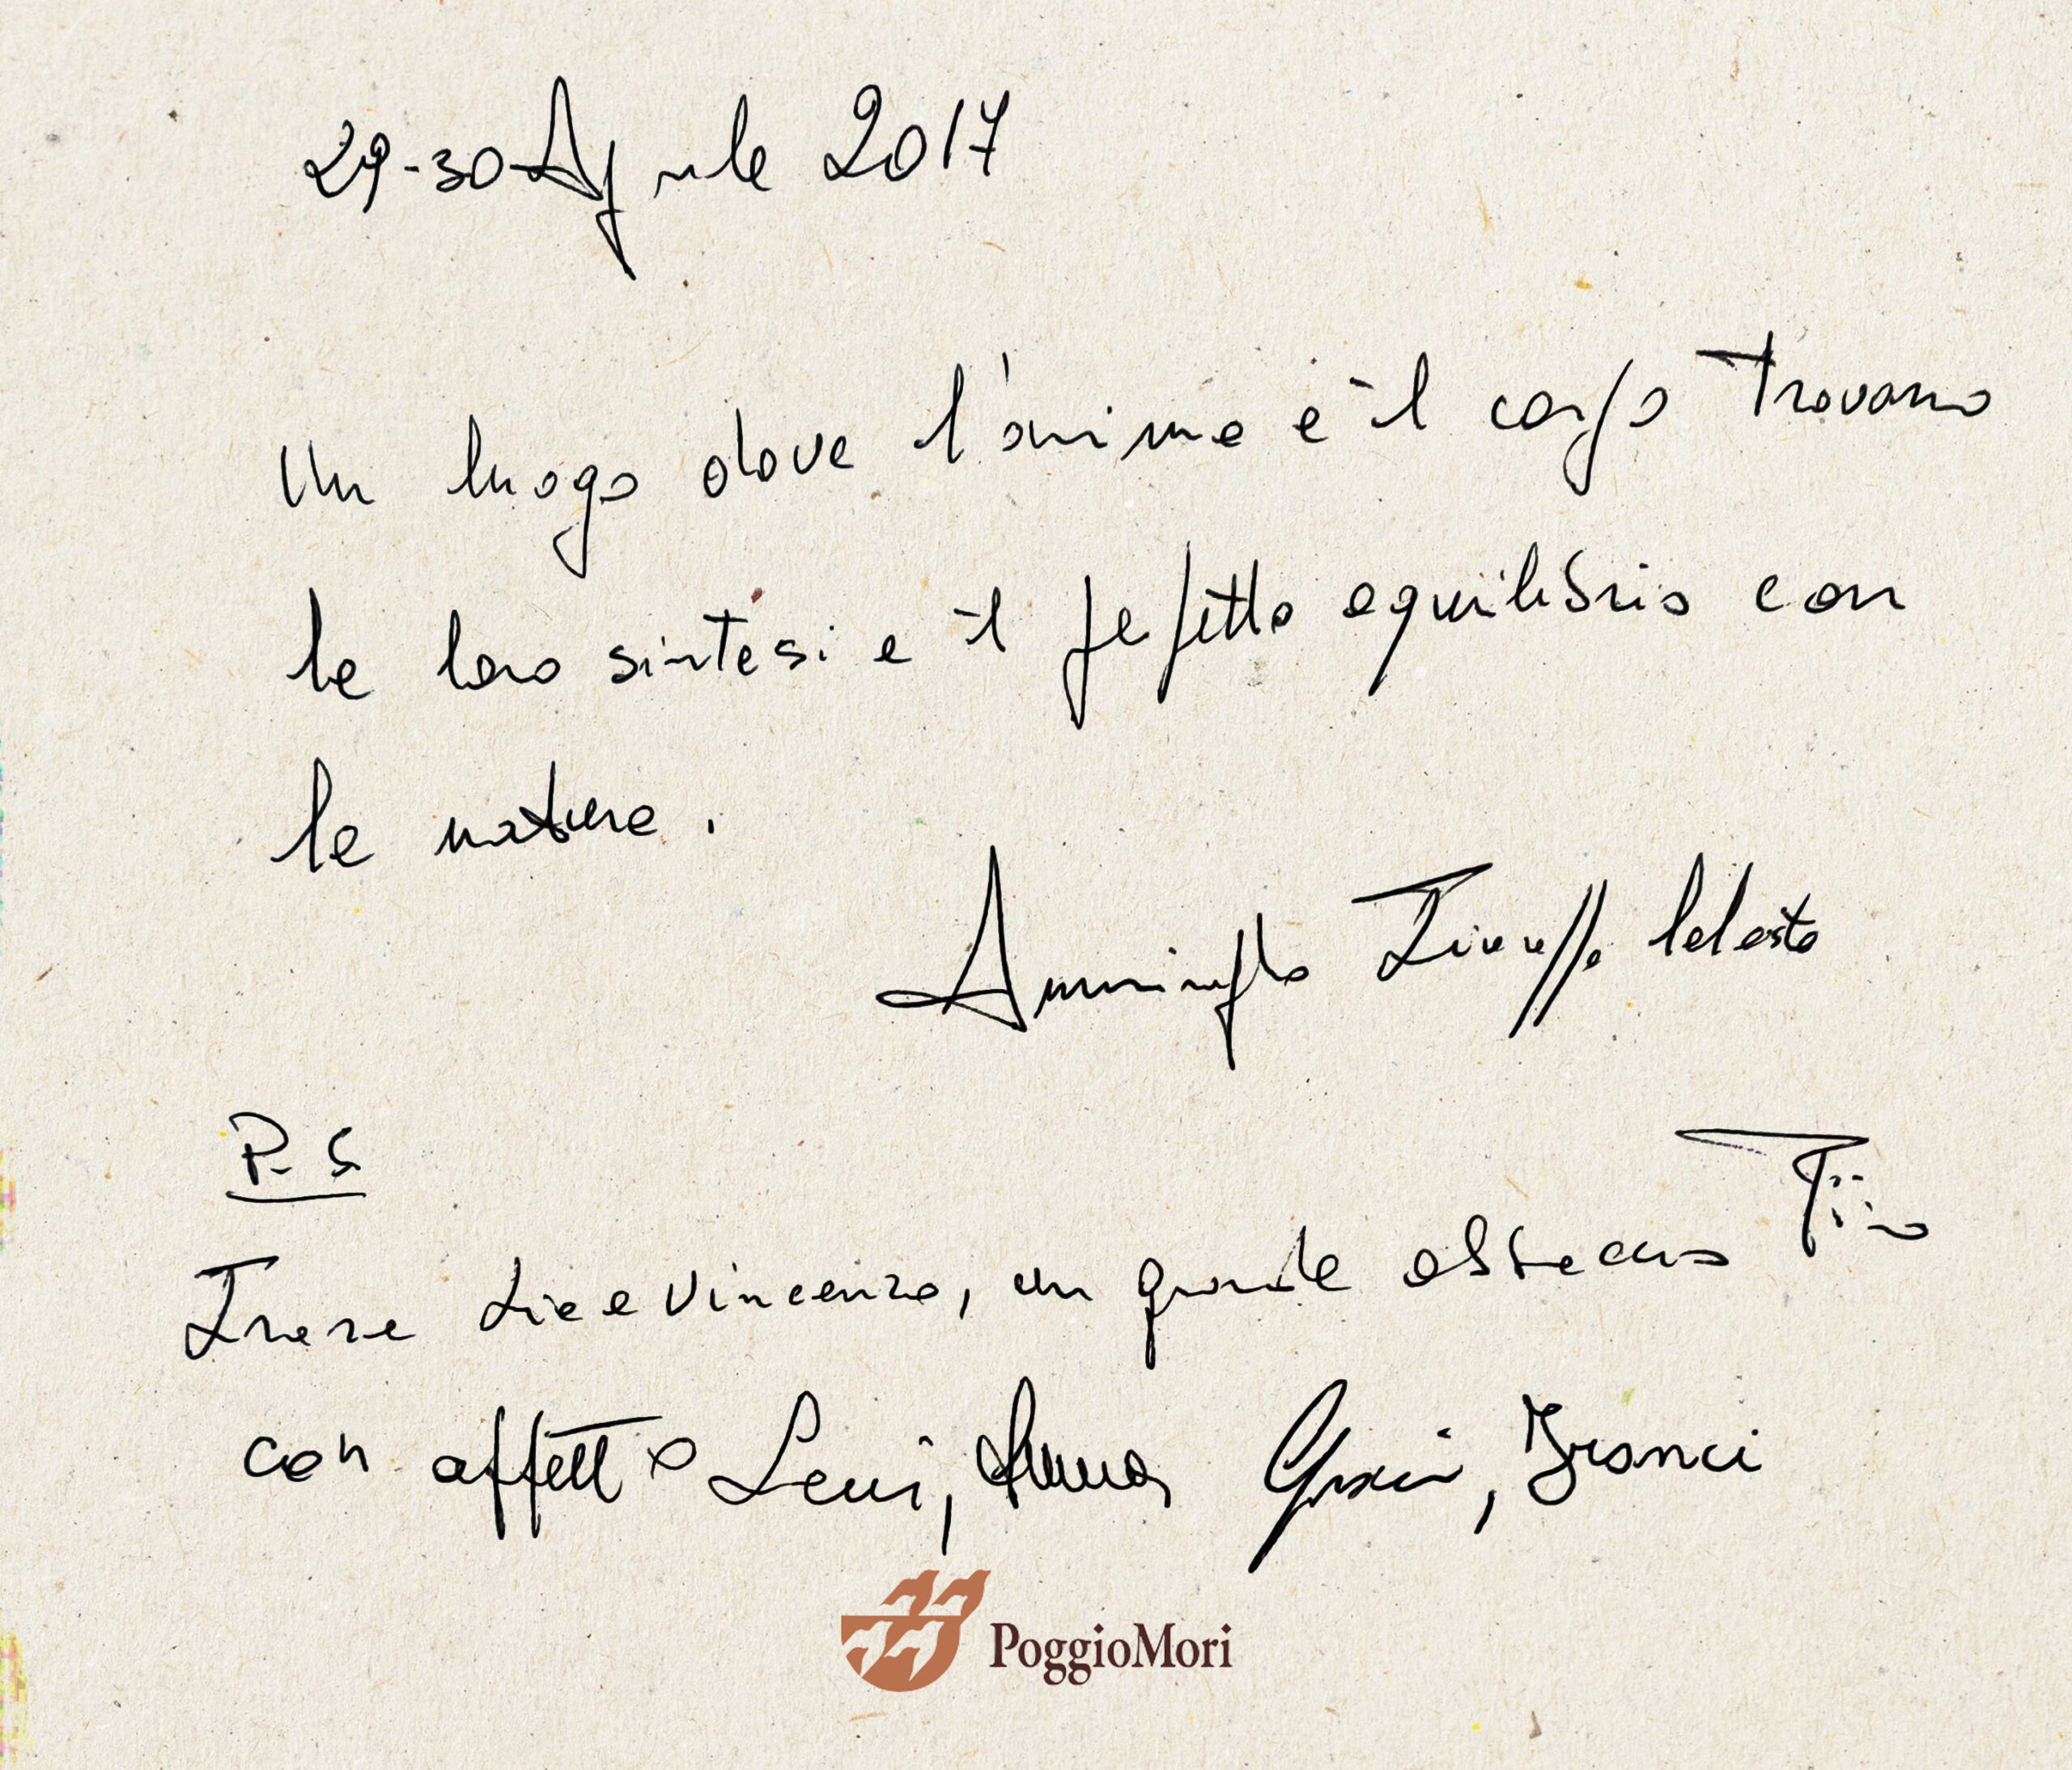 29-30 Aprile 2017
Un luogo dove l'anima e il corpo trovano
la loro sintesi e il pefetto equilibrio con
la natura.
Celeste
P.S
Tino
Irene Lia e Vincenzo, un grande abbraccio
con affetto Leui, Anna, Giusi, Franci
PoggioMori